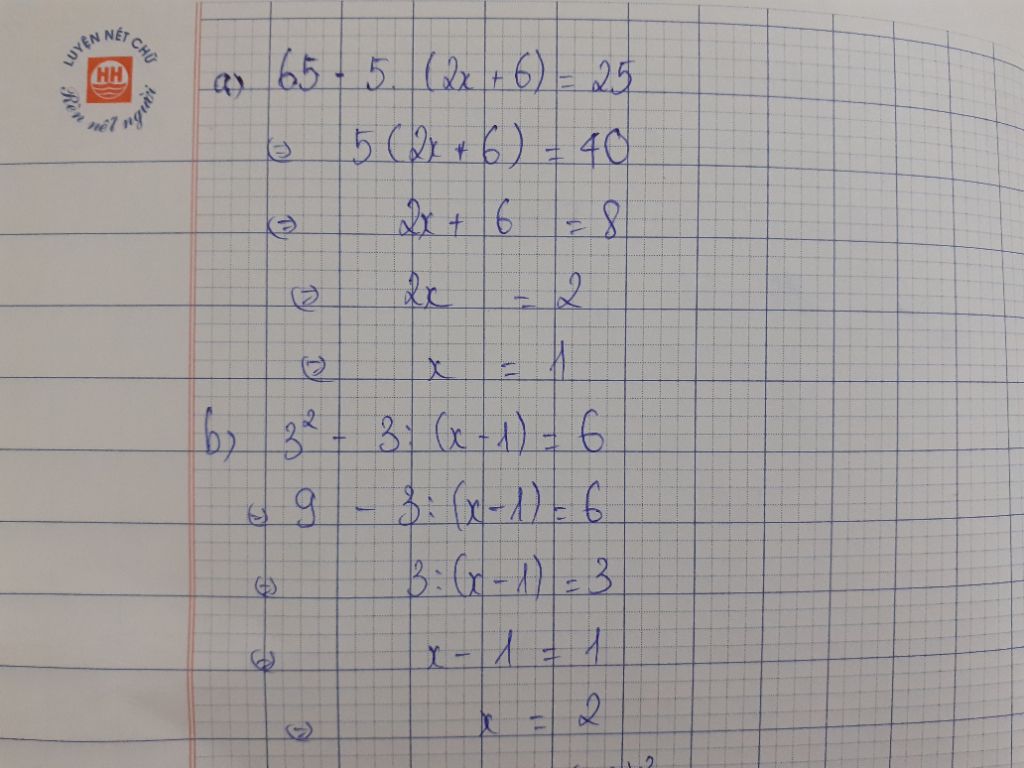 LUYỆN NÉT CHỮ
HH
Rèn nết người
a) 65 - 5. (2x + 6) = 25
⇔ 5 (2x + 6) = 40
⇔ 2x + 6 = 8
⇔ 2x = 2
⇔ x = 1
b) 3² - 3 : (x - 1) = 6
⇔ 9 - 3 : (x - 1) = 6
⇔ 3 : (x - 1) = 3
⇔ x - 1 = 1
⇔ x = 2